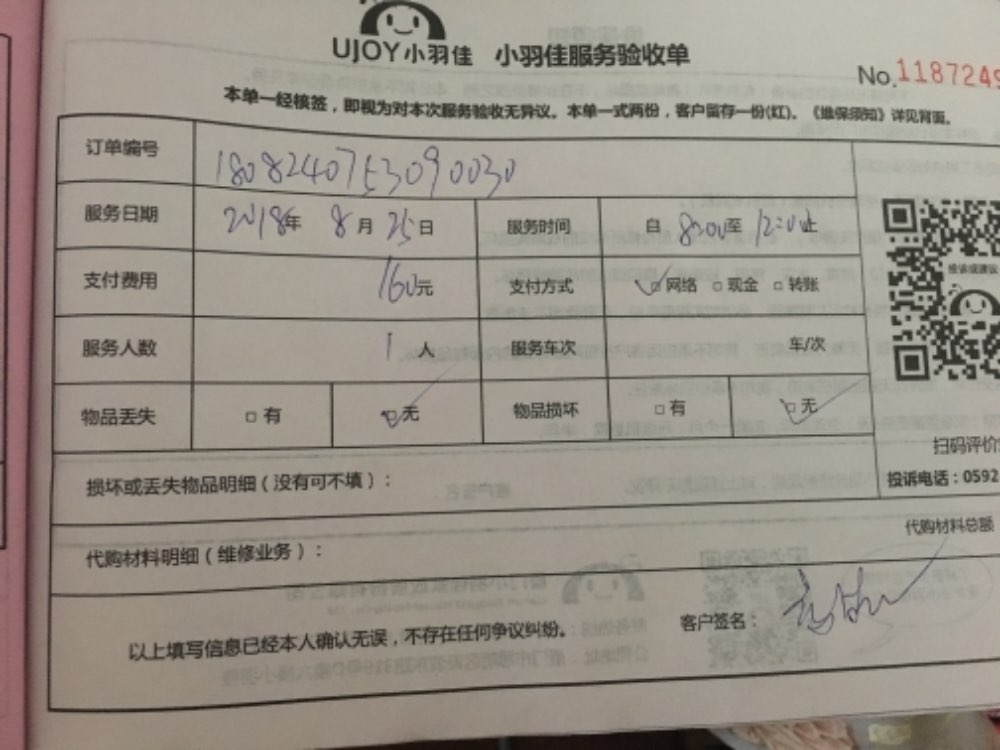 UJOY小羽佳 小羽佳服务验收单
No.1187249
本单一经核签，即视为对本次服务验收无异议。本单一式两份，客户留存一份(红)。《维保须知》详见背面。
订单编号 1808240753090030
服务日期 2018年 8月 25日 服务时间 自 8:00至 12:00止
支付费用 160元 支付方式 网络 现金 转账
投诉或建议
服务人数 1 人 服务车次 车/次
物品丢失 有 无 物品损坏 有 无
扫码评价
损坏或丢失物品明细（没有可不填）：
投诉电话：0592
代购材料总额
代购材料明细（维修业务）：
以上填写信息已经本人确认无误，不存在任何争议纠纷。 客户签名：